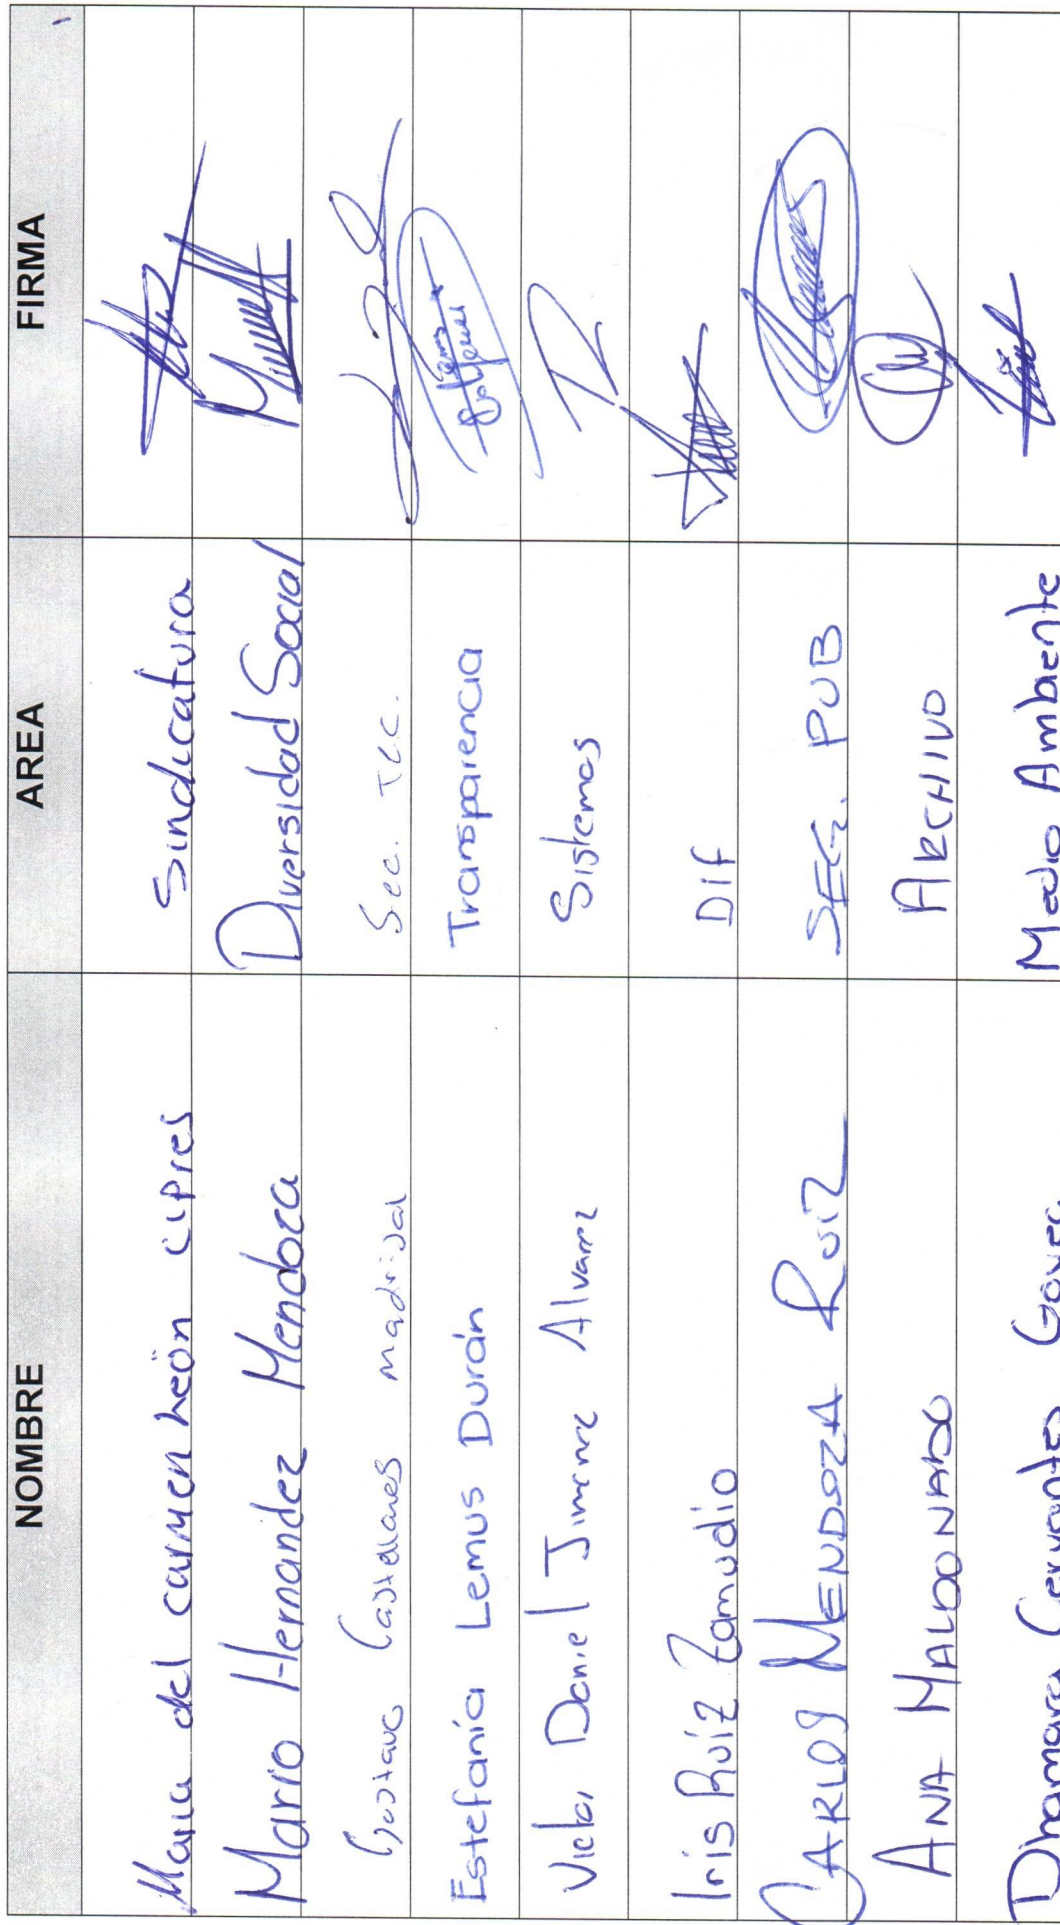 NOMBRE AREA FIRMA
Maria del carmen León cipres Sindicatura
Mario Hernandez Mendoza Diversidad Social
Gustavo Castellanos madrigal Sec. Tec.
Estefanía Lemus Durán Transparencia
Victor Daniel Jimenez Alvarez Sistemas
Iris Ruiz Zamudio Dif
CARLOS MENDOZA RUIZ SEG. PUB
ANA MALDONADO ARCHIVO
Dhamara Cervantes Medio Ambiente